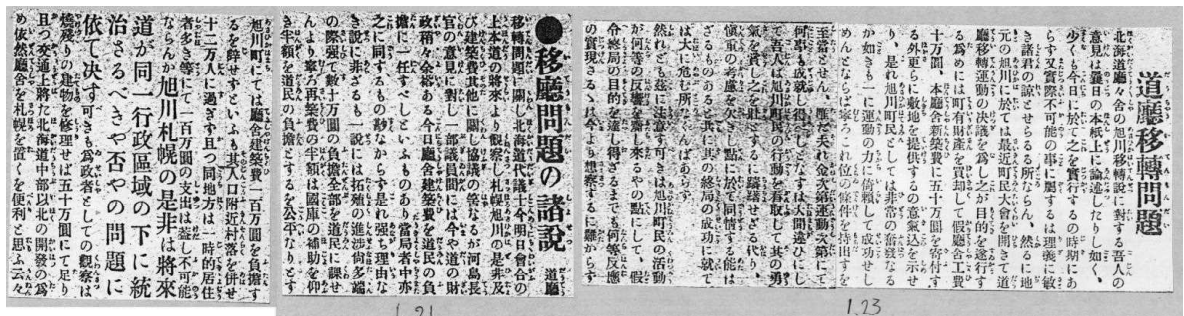 道廳移轉問題
北海道廳々舍の旭川移轉說に對する吾人の
意見は曩日の本紙上に論述したりし如く、
少くも今日に於て之を實行するの時期にあ
らす又實際不可能の事に屬するは理義に敏
き諸君の諒とせらるる所ならん、然るに地
元の旭川に於ては最近町民大會を開きて道
廳移轉運動の決議を爲し之が目的を遂行す
る爲めには町有財産を賣却して假廳舍工費
十万圓、本廳舍新築費に五十万圓を寄付す
る外更らに敷地を提供するの意氣込を示せ
り、是れ旭川町民としては非常の奮發なる
か如きも一に運動の力に倚賴して成功せし
めんとならば寧ろこれ位の條件を持出すを
至當とせん、誰か夫れ金次第運動次第にて
何事も成就し得べしとなすは大間違ひにし
て吾人は旭川町民の行動を看取して其の勇
氣を賞し之を壯とするに躊躇せざる代り、
愼重の考慮を欠きし點に於て同情する能は
ざるものあると共に其の終局の成功に就て
は大に危む所なくんばあらす、
然れとも玆に注意す可きは旭川町民の活動
が何等の反響を齎し來るやの點にして、假
令終局の目的を達し得ざるまでも何等反應
の實現さるゝは今よりも想察するに難からす
1.23
●移廳問題の諸說
道廳
移轉問題に關し北海道代議士は今明日會合の
上本道の將來より觀察し札幌旭川の是非及
び建築費其他に關し協議の筈なるが河島長
官の意見に對し一部議員間には今や道の財
政稍々余裕ある今日廳舍建築費を道民の負
擔に一任すべしといふものあり當局者中亦
之に同するもの尠なからす是れ强ち理由な
き說に非ざるも一說には拓殖の進涉尙多端
の際强て數十万圓の負擔全部を道民に課せ
んより寧ろ再築費の半額は國庫の補助を仰
き半額を道民の負擔とするを公平なりとす
1.21
旭川町にては廳舍建築費一百万圓を負擔す
るを辭せすといふも其人口附近村落を併せ
十二万人に過ぎす且つ同地方は一時的居住
者多き等にて一百万圓の支出は蓋し不可能
ならんか旭川札幌の是非は將來
道が同一行政區域の下に統
治さるべきや否やの問題に
依て決す可きも爲政者としての觀察は
燒殘りの建物を修理せば五十万圓にて足り
且つ交通上將た北海道中部以北の開發の爲
め依然廳舍を札幌に置くを便利と思ふ云々